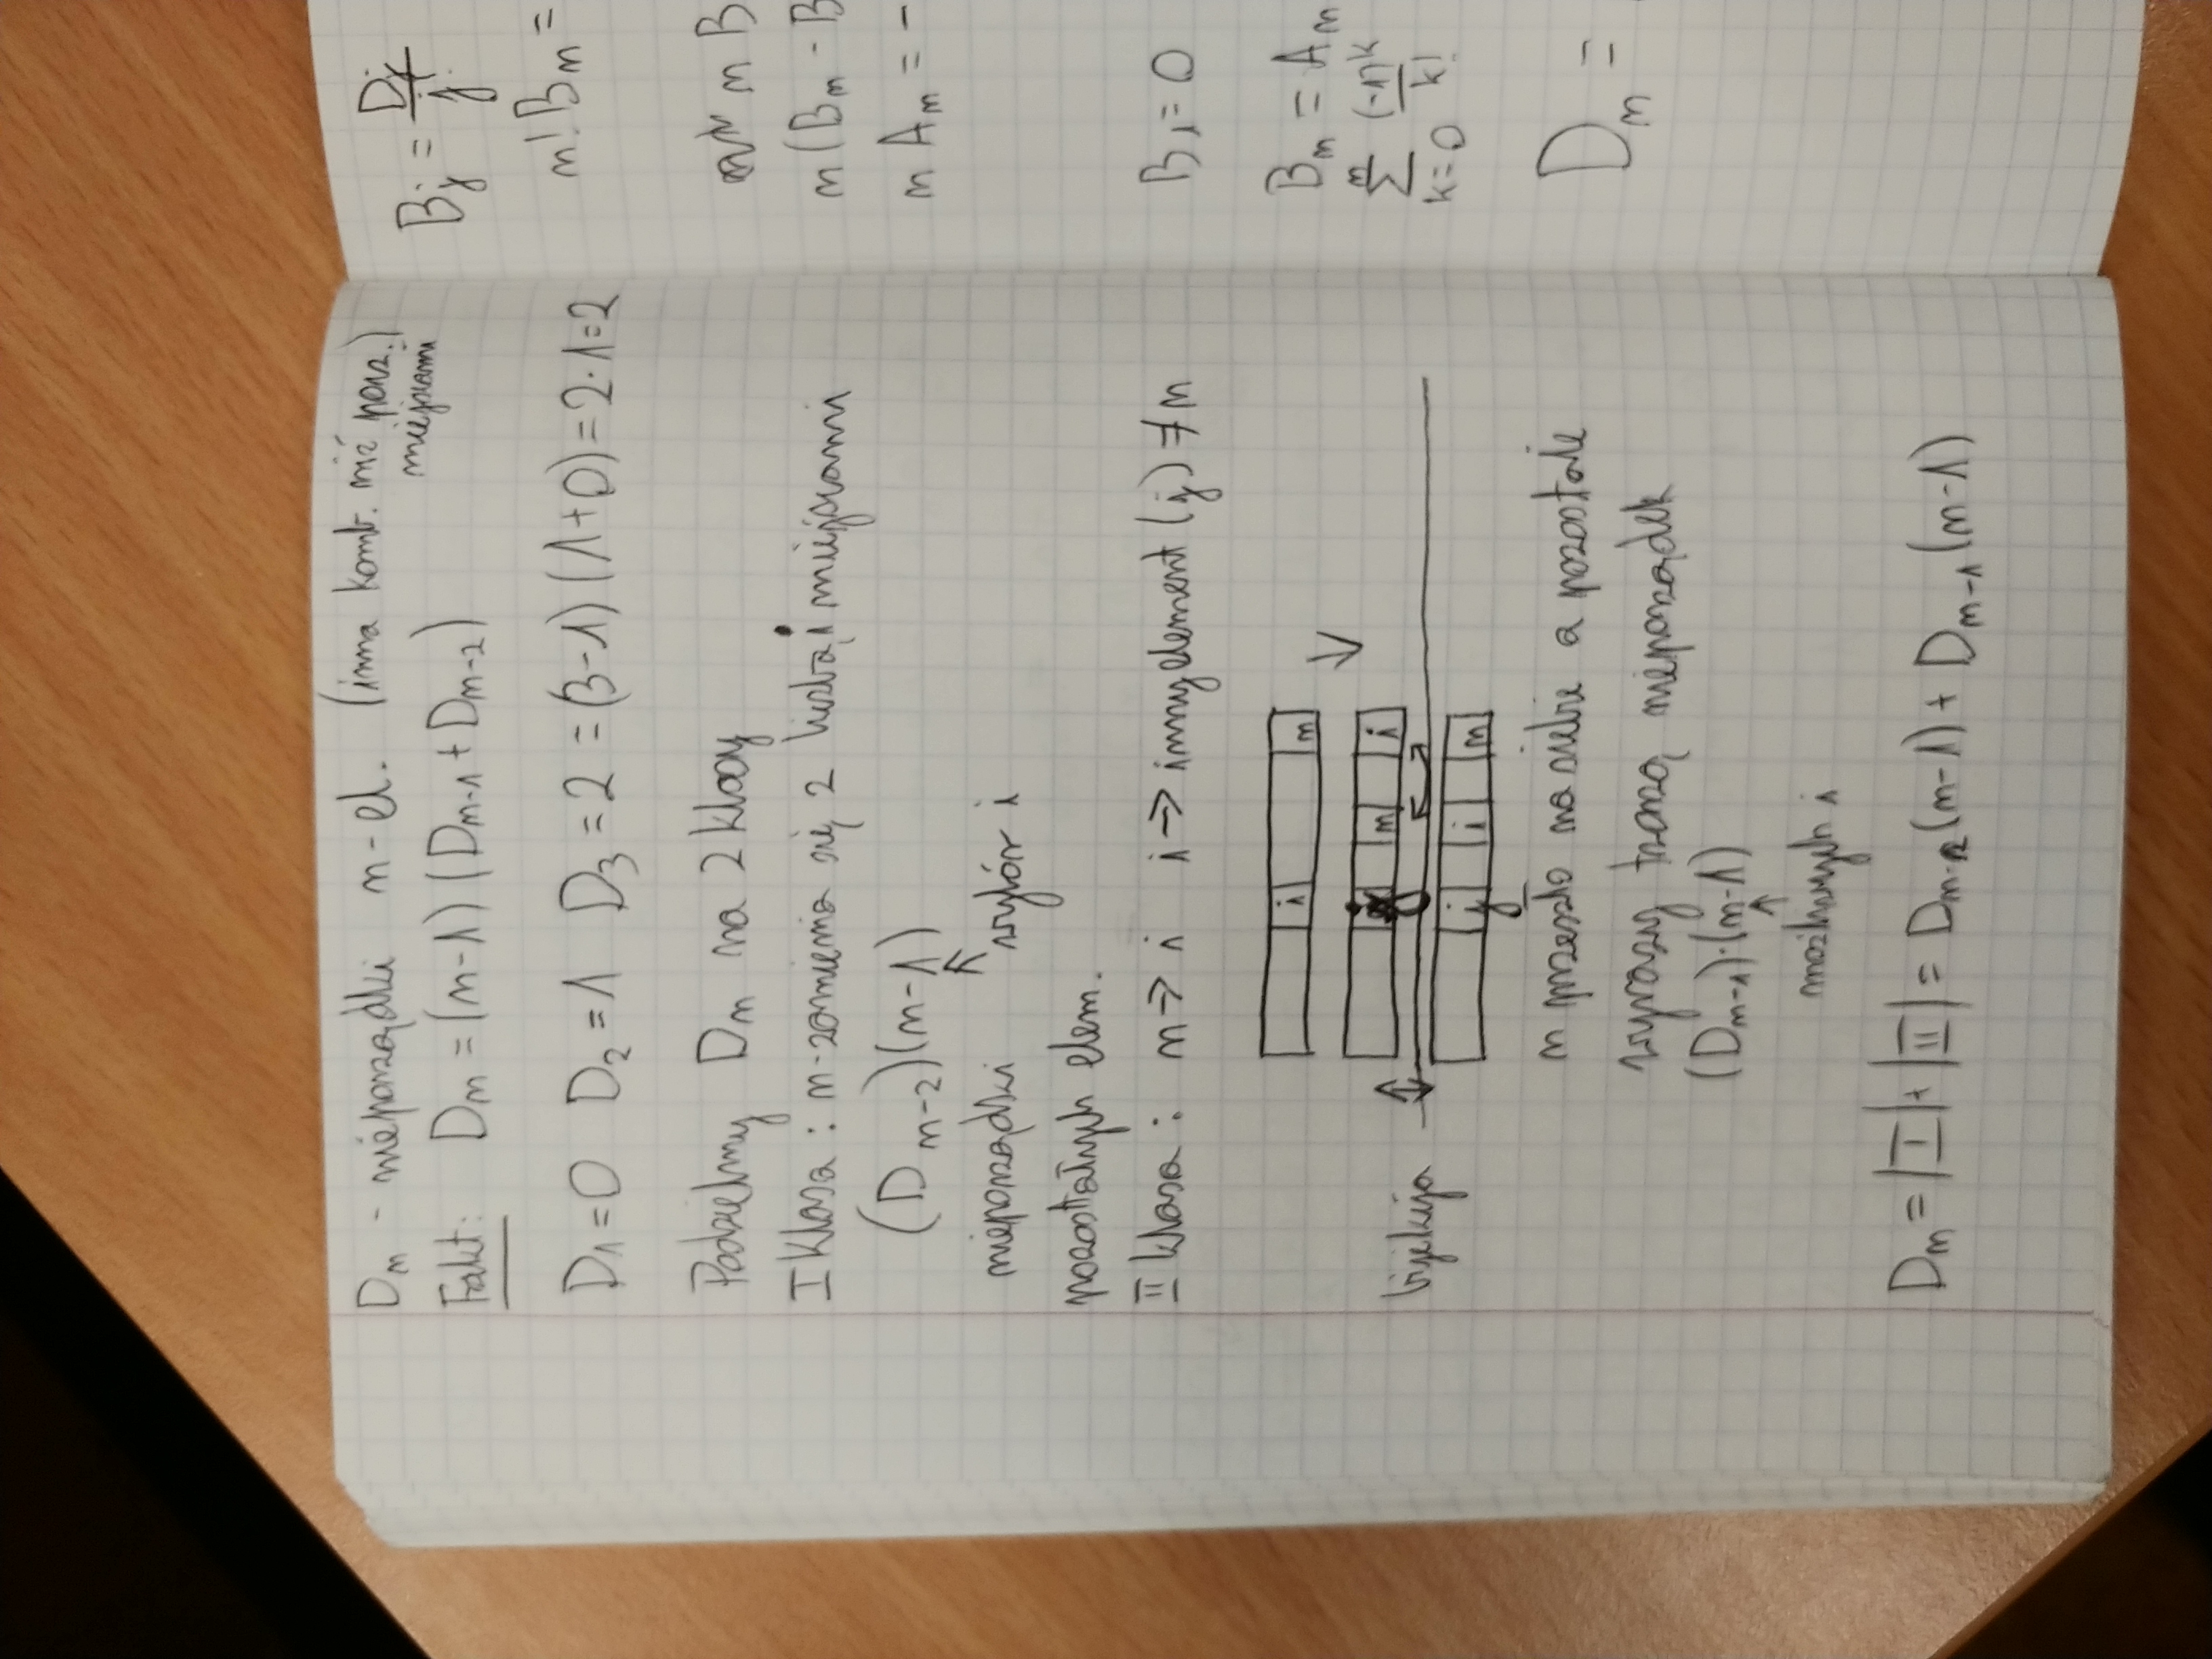 Dn - nieporządki n-el. (inna komb. niż porz.)
miejscami
Fakt: Dn = (n-1) (Dn-1 + Dn-2)
D1=0 D2=1 D3=2 =(3-1) (1+0)=2·1=2
Podzielmy Dn na 2 klasy
I Klasa : n-zamienia się z liczbą i miejscami
(Dn-2)(n-1)
↑
nieporządki wybór i
pozostałych elem.
II klasa : n→ i i→ inny element (j) ≠ n
i n
↓
j n i
bijekcja ↕
j i n
n przeszło na siebie a pozostałe
wyrazy tworzą nieporządek
(Dn-1)·(n-1)
↑
możliwych i
Dn = |I| + |II| = Dn-2(n-1) + Dn-1(n-1)
Bj = Dj/j!
n! Bn =
n B
n(Bn - B
n An = -
B1 = 0
Bn = An
n
∑ (-1)^k/k!
k=0
Dn =